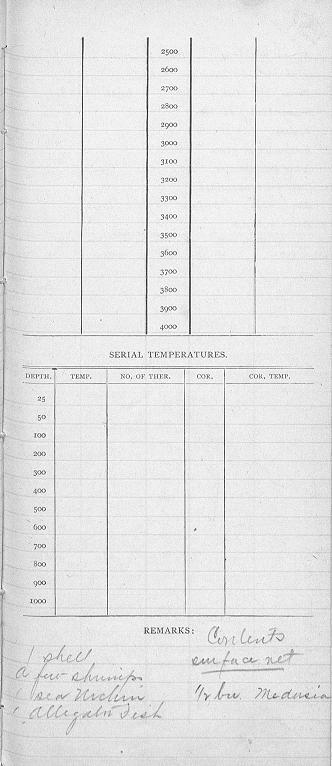 2500
2600
2700
2800
2900
3000
3100
3200
3300
3400
3500
3600
3700
3800
3900
4000
SERIAL TEMPERATURES.
DEPTH. TEMP. NO. OF THER. COR. COR. TEMP.
25
50
100
200
300
400
500
600
700
800
900
1000
REMARKS: Contents
surface net
1 shell
A few shrimps
1 sea Urchin 1/2 bu. Medusia
1 Alligator Fish